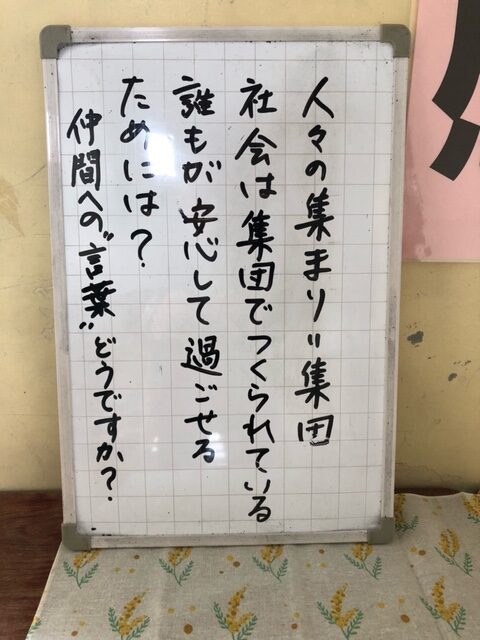 人々の集まり＝集団
社会は集団でつくられている
誰もが安心して過ごせる
ためには？
仲間への〝言葉〟どうですか？